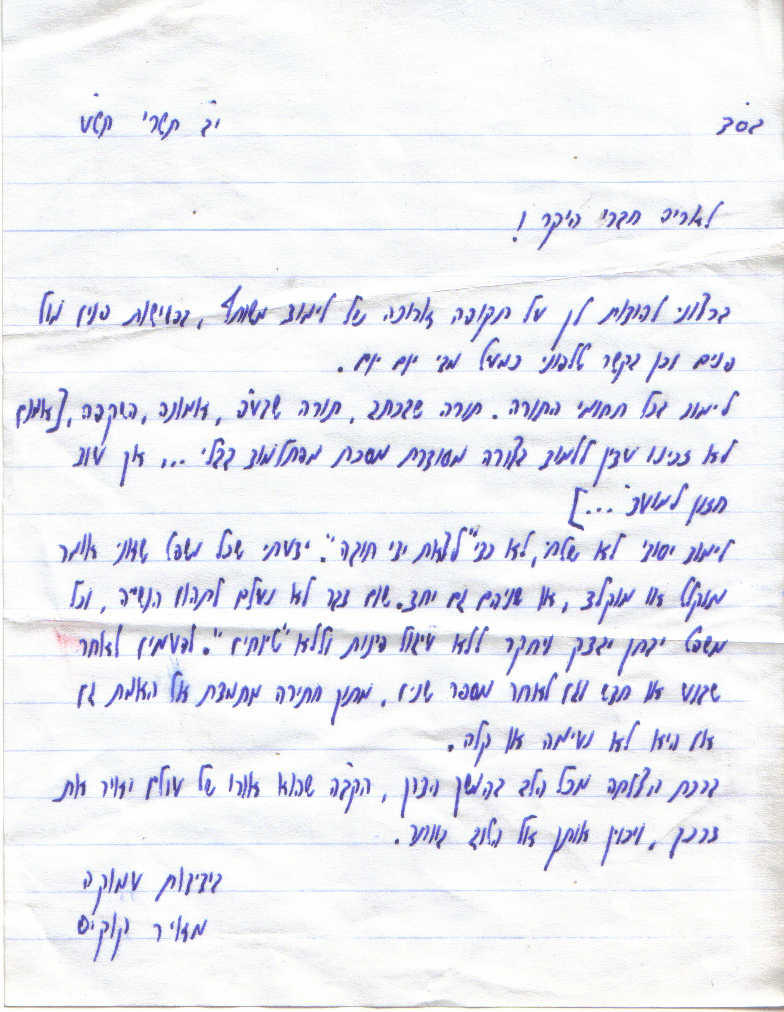 בס"ד
יב תשרי תש"ע
לאריה חברי היקר !
ברצוני להודות לך על תקופה ארוכה של לימוד משותף, בפגישות פנים מול
פנים וכן בקשר טלפוני כמעט מדי יום יום.
לימוד בכל תחומי התורה. תורה שבכתב, תורה שבע"פ, אמונה, השקפה, [אמנם
לא זכינו עדיין ללמוד בצורה מסודרת מסכת מהתלמוד בבלי ... אך עוד
חזון למועד ...]
לימוד יסודי לא שטחי, לא כדי "לצאת ידי חובה". ידעתי שכל משפט שאני אומר
מוקלט או מוקלד, או שניהם גם יחד. שום דבר לא נעלם לתהום הנשיה, וכל
משפט יבחן יבדק ויחקר ללא עיגול פינות וללא "טיוחים". לפעמים לאחר
שבוע או חדש וגם לאחר מספר שנים, מתוך חתירה מתמדת אל האמת גם
אם היא לא נעימה או קלה.
ברכת הצלחה מכל הלב בהמשך הדרך, הקב"ה שהוא אורו של עולם יאיר את
דרכך, ויכוין אותך אל הטוב ביותר.
בידידות עמוקה
מאיר קוקיס